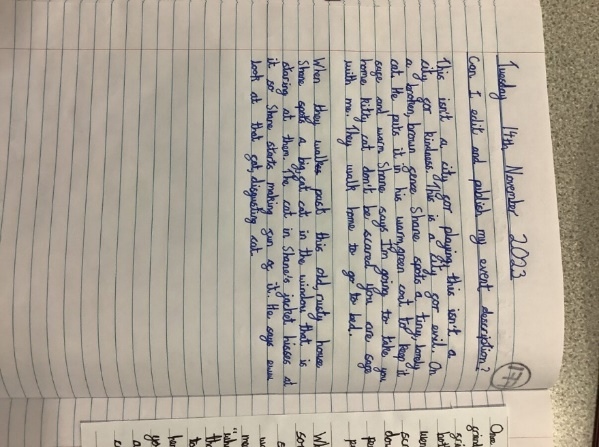 17
Tuesday 14th November 2023
Can I edit and publish my event description?
This isn't a city for playing, this isn't a
city for kindness. This is a city for evil. On
a broken, brown fence Shane spots a tiny, lonely
cat. He puts it in his warm, green coat to keep it
safe and warm. Shane says I'm going to take you
home kitty cat don't be scared you are safe
with me. They walk home to go to bed.
When they walked past this old, rusty house
Shane spots a big fat cat in the window that is
staring at them. The cat in Shane's jacket hisses at
it so Shane starts making fun of it. He says eww
look at that fat, disgusting cat